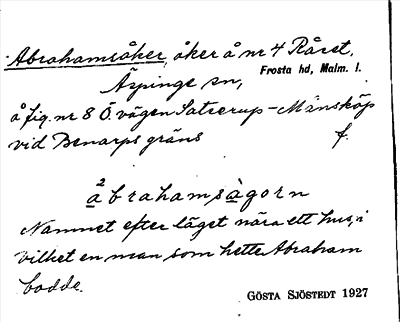 Abrahamsåker, åker å nr 4 Råret,
Frosta hd, Malm. l.
Äspinge sn,
å fig. nr 8 Ö. vägen Satserup-Månsköp
vid Benarps gräns f.
2
abrahamsàgorn
Namnet efter läget nära ett hus, i
vilket en man som hette Abraham
bodde.
GÖSTA SJÖSTEDT 1927